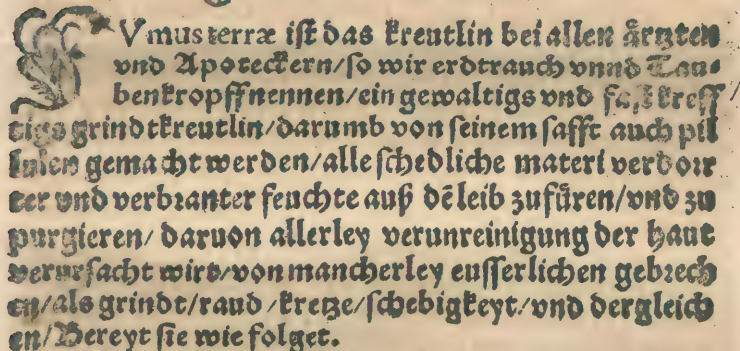 FVmus terræ ist das kreutlin bei allen ärtzten
vnd Apoteckern/so wir erdtrauch vnnd Tau⸗
benkropff nennen/ein gewaltigs vnd fast kreff
tigs grindtkreutlin/darumb von seinem safft auch pil
lulen gemacht werden/alle schedliche materi verdorr
ter vnd verbranter feuchte auß dē leib zufüren/vnd zu
purgieren/ daruon allerley verunreinigung der haut
verursacht wirt/von mancherley eusserlichen gebrech
en/als grindt/raud/kretze/schebigkeyt/vnd dergleich
en/Bereyt sie wie folget.